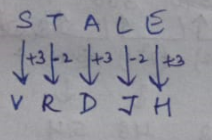 S T A L E
+3 -2 +3 -2 +3
V R D J H